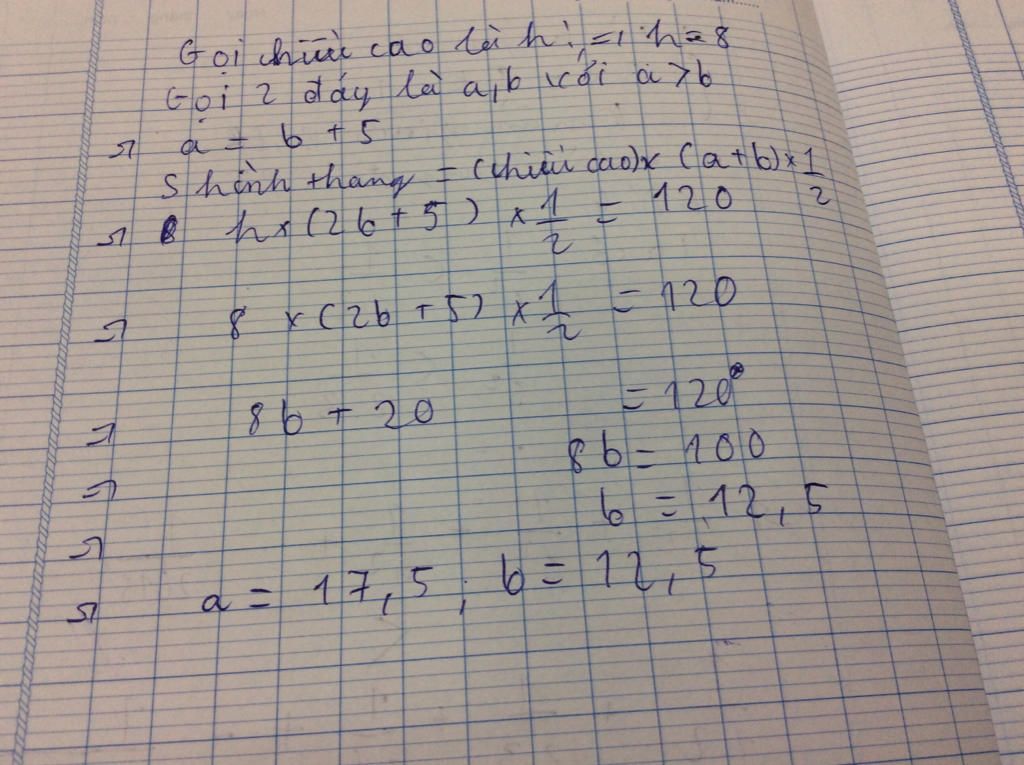 Gọi chiều cao là h ; => h = 8
Gọi 2 đáy là a,b với a > b
=> a = b + 5
S hình thang = (chiều cao) x (a+b) x 1/2
=> h x (2b + 5) x 1/2 = 120
=> 8 x (2b + 5) x 1/2 = 120
=> 8b + 20 = 120
=> 8b = 100
=> b = 12,5
=> a = 17,5 ; b = 12,5